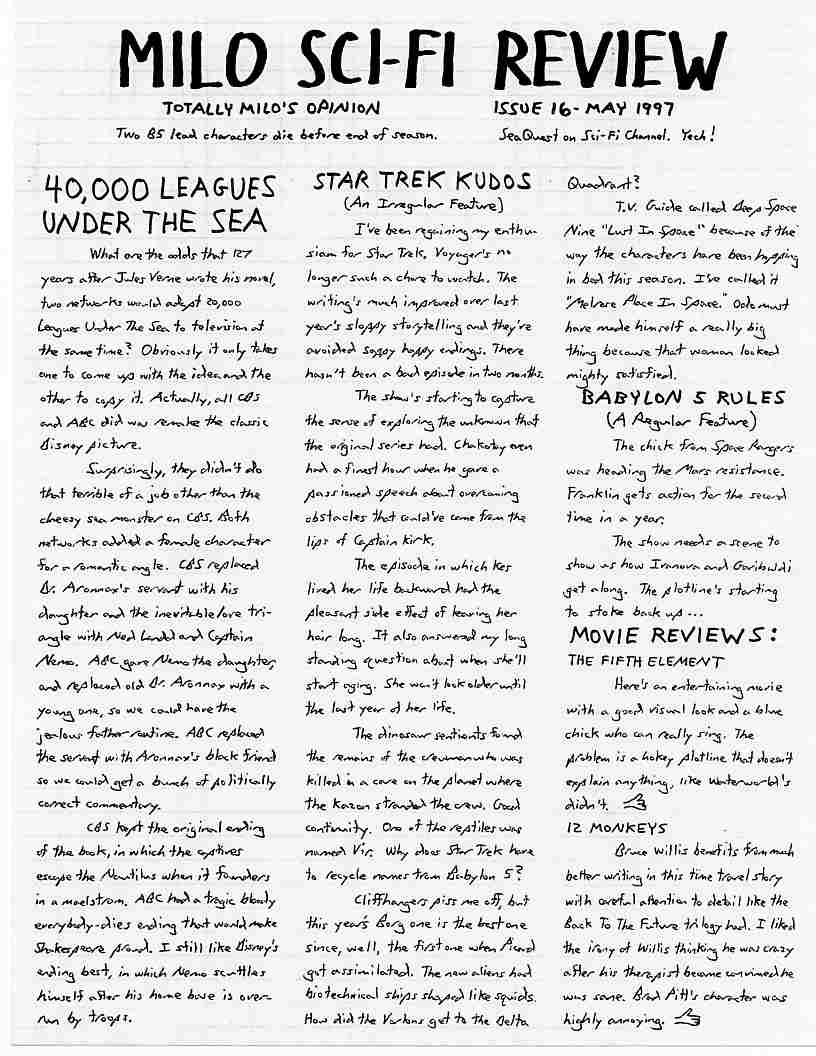 MILO SCI-FI REVIEW
TOTALLY MILO'S OPINION
ISSUE 16 - MAY 1997
Two B5 lead characters die before end of season.
SeaQuest on Sci-Fi Channel. Yech!
40,000 LEAGUES
UNDER THE SEA
What are the odds that 127
years after Jules Verne wrote his novel,
two networks would adapt 20,000
Leagues Under The Sea to television at
the same time? Obviously it only takes
one to come up with the idea and the
other to copy it. Actually, all CBS
and ABC did was remake the classic
Disney picture.
Surprisingly, they didn't do
that terrible of a job other than the
cheezy sea monster on CBS. Both
networks added a female character
for a romantic angle. CBS replaced
Dr. Aronnax's servant with his
daughter and the inevitable love tri-
angle with Ned Land and Captain
Nemo. ABC gave Nemo the daughter,
and replaced old Dr. Aronnax with a
young one, so we could have the
jealous father routine. ABC replaced
the servant with Aronnax's black friend
so we could get a bunch of politically
correct commentary.
CBS kept the original ending
of the book, in which the captives
escape the Nautilus when it founders
in a maelstrom. ABC had a tragic bloody
everybody-dies ending that would make
Shakespeare proud. I still like Disney's
ending best, in which Nemo scuttles
himself after his home base is over-
run by troops.
STAR TREK KUDOS
(An Irregular Feature)
I've been regaining my enthu-
siasm for Star Trek. Voyager's no
longer such a chore to watch. The
writing's much improved over last
year's sloppy storytelling and they've
avoided sappy happy endings. There
hasn't been a bad episode in two months.
The show's starting to capture
the sense of exploring the unknown that
the original series had. Chakotay even
had a finest hour when he gave a
passioned speech about overcoming
obstacles that could've come from the
lips of Captain Kirk.
The episode in which Kes
lived her life backward had the
pleasant side effect of leaving her
hair long. It also answered my long
standing question about when she'll
start aging. She won't look older until
the last year of her life.
The dinosaur sentients found
the remains of the crewman who was
killed in a cave on the planet where
the Kazon stranded the crew. Good
continuity. One of the reptiles was
named Vir. Why does Star Trek have
to recycle names from Babylon 5?
Cliffhangers piss me off, but
this year's Borg one is the best one
since, well, the first one when Picard
got assimilated. The new aliens had
biotechnical ships shaped like squids.
How did the Vorlons get to the Delta
Quadrant?
T.V. Guide called Deep Space
Nine "Lust In Space" because of the
way the characters have been hopping
in bed this season. I've called it
"Melrose Place In Space." Odo must
have made himself a really big
thing because that woman looked
mighty satisfied.
BABYLON 5 RULES
(A Regular Feature)
The chick from Space Rangers
was heading the Mars resistance.
Franklin gets action for the second
time in a year.
The show needs a scene to
show us how Ivanova and Garibaldi
get along. The plotline's starting
to stoke back up...
MOVIE REVIEWS:
THE FIFTH ELEMENT
Here's an entertaining movie
with a good visual look and a blue
chick who can really sing. The
problem is a hokey plotline that doesn't
explain anything, like Waterworld's
didn't.
12 MONKEYS
Bruce Willis benefits from much
better writing in this time travel story
with careful attention to detail like the
Back To The Future trilogy had. I liked
the irony of Willis thinking he was crazy
after his therapist became convinced he
was sane. Brad Pitt's character was
highly annoying.